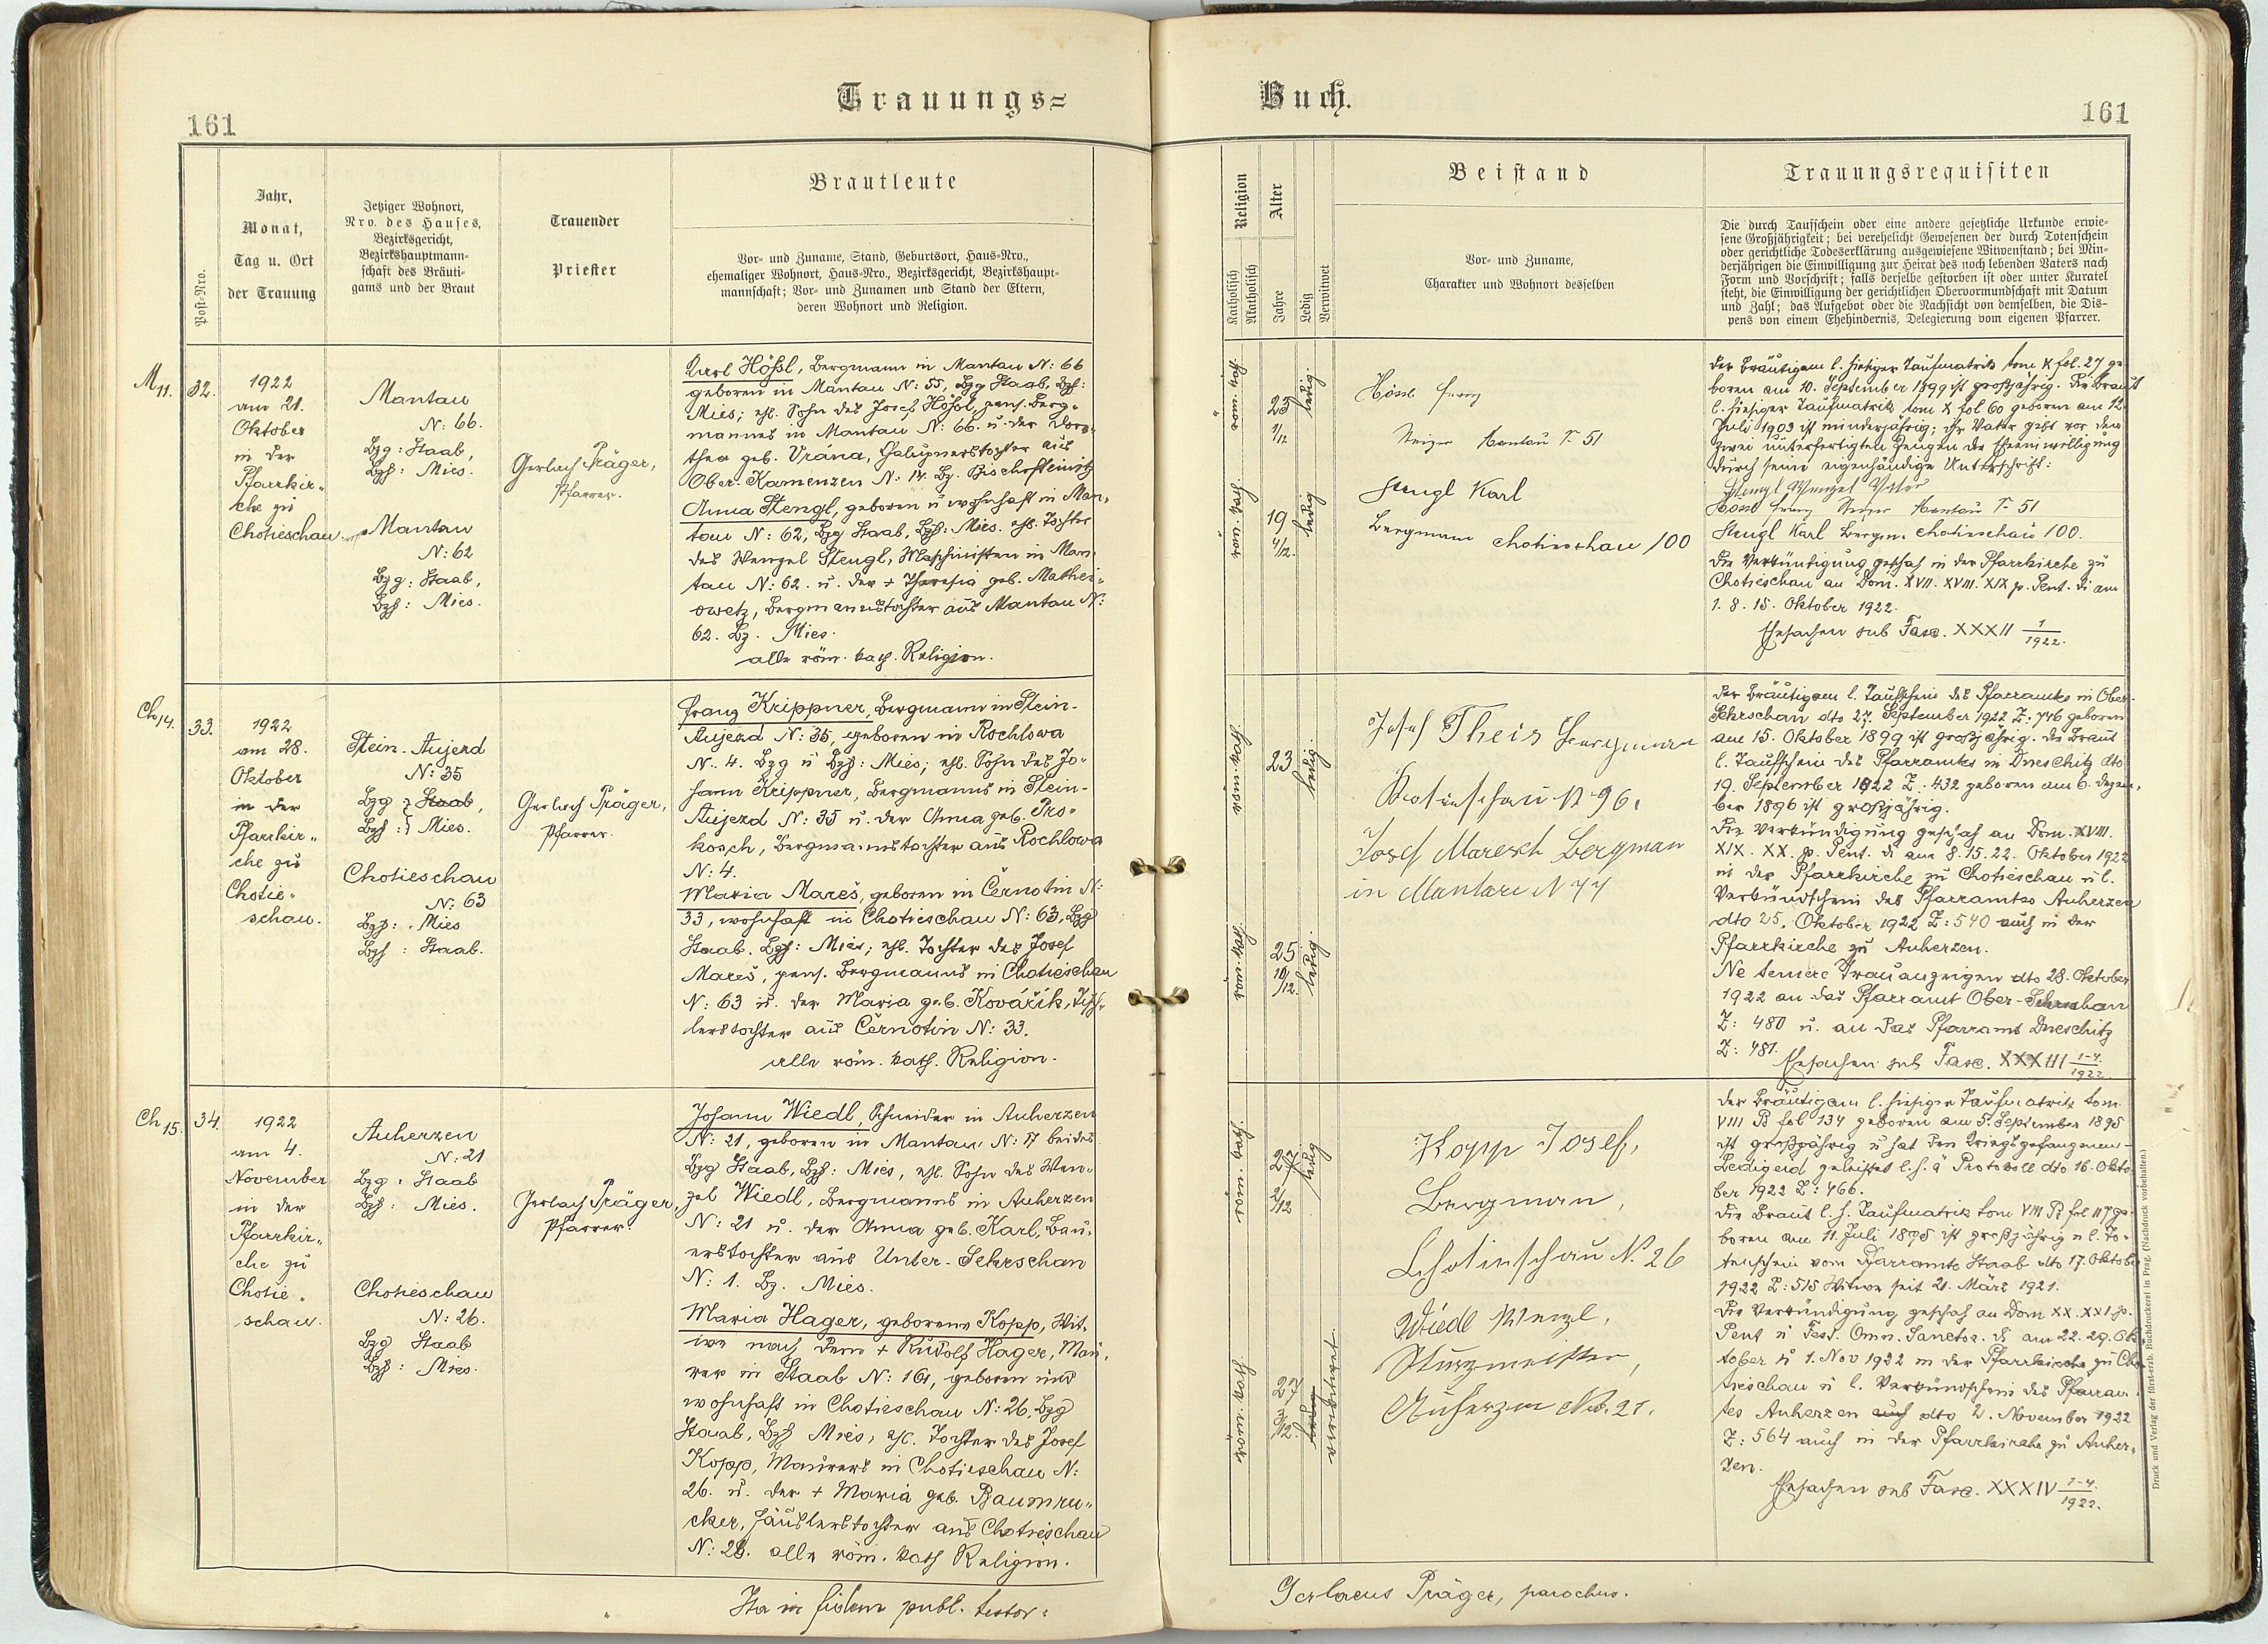 Trauungs=
Buch.
161
161
Post-Nro.
Jahr,
Monat,
Tag u. Ort
der Trauung
Jetziger Wohnort,
Nro. des Hauses,
Bezirksgericht,
Bezirkshauptmann-
schaft des Bräuti-
gams und der Braut
Trauender
Priester
Brautleute
Vor- und Zuname, Stand, Geburtsort, Haus-Nro.,
ehemaliger Wohnort, Haus-Nro., Bezirksgericht, Bezirkshaupt-
mannschaft; Vor- und Zunamen und Stand der Eltern,
deren Wohnort und Religion.
Religion
Katholisch
Akatholisch
Alter
Jahre
Ledig
Verwitwet
Beistand
Vor- und Zuname,
Charakter und Wohnort desselben
Trauungsrequisiten
Die durch Taufschein oder eine andere gesetzliche Urkunde erwie-
sene Großjährigkeit; bei verehelicht Gewesenen der durch Totenschein
oder gerichtliche Todeserklärung ausgewiesene Witwenstand; bei Min-
derjährigen die Einwilligung zur Heirat des noch lebenden Vaters nach
Form und Vorschrift; falls derselbe gestorben ist oder unter Kuratel
steht, die Einwilligung der gerichtlichen Obervormundschaft mit Datum
und Zahl; das Aufgebot oder die Nachsicht von demselben, die Dis-
pens von einem Ehehindernis, Delegierung vom eigenen Pfarrer.
M 11. 32.
1922
am 21.
Oktober
in der
Pfarrkir„
che zu
Chotieschau.
Mantau
N: 66.
Bzg: Staab,
Bzh: Mies.
Mantau
N: 62
Bzg: Staab,
Bzh: Mies.
Gerlach Präger,
Pfarrer.
Karl Hößl, Bergmann in Mantau N: 66
geboren in Mantau N: 55, Bzg Staab, Bzh:
Mies; ehl. Sohn des Josef Hößl, pens. Berg-
mannes in Mantau N: 66. u. der Doro-
thea geb. Vrana, Chalupnerstochter aus
Ober-Kamenzen N: 14. Bz. Bischofteinitz
Anna Stengl, geboren u wohnhaft in Man-
tau N: 62, Bzg Staab, Bzh: Mies. ehl. Tochter
des Wenzel Stengl, Maschinisten in Man-
tau N: 62. u. der + Theresia geb. Mathei-
owetz, Bergmannstochter aus Mantau N:
62. Bz. Mies.
alle röm. kath. Religion.
röm. kath.
23
1/12
ledig.
röm. kath.
19
4/12.
ledig
Hössl Franz
Mantau N 51
Stengl Karl
Bergmann Chotieschau 100
Der Bräutigam l. hiesiger Taufmatrik tom X fol. 27 ge
boren am 10. September 1899 ist großjährig. Die Braut
l. hiesiger Taufmatrik tom X fol 60 geboren am 12.
Juli 1903 ist minderjährig; ihr Vater gibt vor den
zwei unterfertigten Zeugen die Eheeinwilligung
durch seine eigenhändige Unterschrift:
Stengl Wenzel Vater
Hössl Franz Mantau N 51
Stengl Karl Bergm. Chotieschau 100.
Die Verkündigung geschah in der Pfarrkirche zu
Chotieschau an Dom. XVII. XVIII. XIX p. Pent. di am
1. 8. 15. Oktober 1922.
Ehesachen sub Fasc. XXXII 1/1922.
Ch 14. 33.
1922
am 28.
Oktober
in der
Pfarrkir„
che zu
Chotie„
schau.
Stein-Aujezd
N: 35
Bzg: Staab,
Bzh: Mies.
Chotieschau
N: 63
Bzg: Mies
Bzh: Staab.
Gerlach Präger,
Pfarrer.
Franz Krippner, Bergmann in Stein-
Aujezd N: 35, geboren in Rochlowa
N. 4. Bzg u Bzh: Mies; ehl. Sohn des Jo-
hann Krippner, Bergmanns in Stein-
Aujezd N: 35 u. der Anna geb. Pro-
kosch, Bergmannstochter aus Rochlowa
N: 4.
Maria Mareš, geboren in Černotin N:
33, wohnhaft in Chotieschau N: 63, Bzg
Staab. Bzh: Mies; ehl. Tochter des Josef
Mareš, pens. Bergmanns in Chotieschau
N: 63 u. der Maria geb. Kovářík, Tisch-
lerstochter aus Černotin N: 33.
alle röm. kath. Religion.
röm. kath.
23
ledig.
röm. kath.
25
10/12.
ledig.
Josef Theis Bergmann
Chotieschau N 96.
Josef Maresch Bergman
in Mantau N 77
Der Bräutigam l. Taufschein des Pfarramtes in Ober-
Sekrschan dto 27. September 1922 Z: 746 geboren
am 15. Oktober 1899 ist großjährig. Die Braut
l. Taufschein des Pfarramtes in Dneschitz dto
19. September 1922 Z: 432 geboren am 6. Dezem-
ber 1896 ist großjährig.
Die Verkündigung geschah an Dom. XVIII.
XIX. XX. p. Pent. di am 8. 15. 22. Oktober 1922
in der Pfarrkirche zu Chotieschau u l.
Verkündschein des Pfarramtes Auherzen
dto 25. Oktober 1922 Z: 540 auch in der
Pfarrkirche zu Auherzen.
Ne temere Trauanzeigen dto 28. Oktober
1922 an das Pfarramt Ober-Sekrschan
Z: 480 u. an das Pfarramt Dneschitz
Z: 481.
Ehesachen sub Fasc. XXXIII 1-4./1922
Ch 15. 34.
1922
am 4.
November
in der
Pfarrkir„
che zu
Chotie„
schau.
Auherzen
N: 21
Bzg: Staab
Bzh: Mies.
Chotieschau
N: 26.
Bzg Staab
Bzh: Mies.
Gerlach Präger,
Pfarrer.
Johann Wiedl, Schneider in Auherzen
N: 21, geboren in Mantau N: 17 beides
Bzg Staab, Bzh: Mies, ehl. Sohn des Wen-
zel Wiedl, Bergmanns in Auherzen
N: 21 u. der Anna geb. Karl, Bau-
erstochter aus Unter-Sekrschan
N: 1. Bz. Mies.
Maria Hager, geborene Kopp, Wit-
we nach dem + Rudolf Hager, Mau-
rer in Staab N: 161, geboren und
wohnhaft in Chotieschau N: 26, Bzg
Staab, Bzh Mies, ehl. Tochter des Josef
Kopp, Maurers in Chotieschau N:
26. u. der + Maria geb. Baumru-
cker, Häuslerstochter aus Chotieschau
N: 28. alle röm. kath Religion.
röm. kath.
27
2/12
ledig
röm. kath.
27
3/12.
ledig
verwitwet.
Kopp Josef,
Bergman,
Chotieschau N. 26
Wiedl Wenzl,
Auherzen Nro. 21.
Der Bräutigam l. hiesiger Taufmatrik tom
VIII B fol 134 geboren am 5. September 1895
ist großjährig u hat den Kriegsgefangenen-
Ledigeid geleistet l. h. ä Protokoll dto 16. Okto
ber 1922 Z: 466.
Die Braut l. h. Taufmatrik tom VIII B fol 117 ge-
boren am 11. Juli 1895 ist großjährig u l. To-
tenschein vom Pfarramte Staab dto 17. Oktober
1922 Z: 515 Witwe seit 21. März 1921.
Die Verkündigung geschah an Dom XX. XXI. p.
Pent u Fest. Omn. Sanctor. di am 22. 29. Ok-
tober u 1. Nov 1922 in der Pfarrkirche zu Cho-
tieschau u l. Verkündschein des Pfarram-
tes Auherzen auch dto 2. November 1922
Z: 564 auch in der Pfarrkirche zu Auher-
zen.
Ehesachen sub Fasc. XXXIV 1-4./1922.
Ita in fidem publ. testor:
Gerlacus Präger, parochus.
Druck und Verlag der fürst-erzb. Buchdruckerei in Prag. (Nachdruck vorbehalten.)